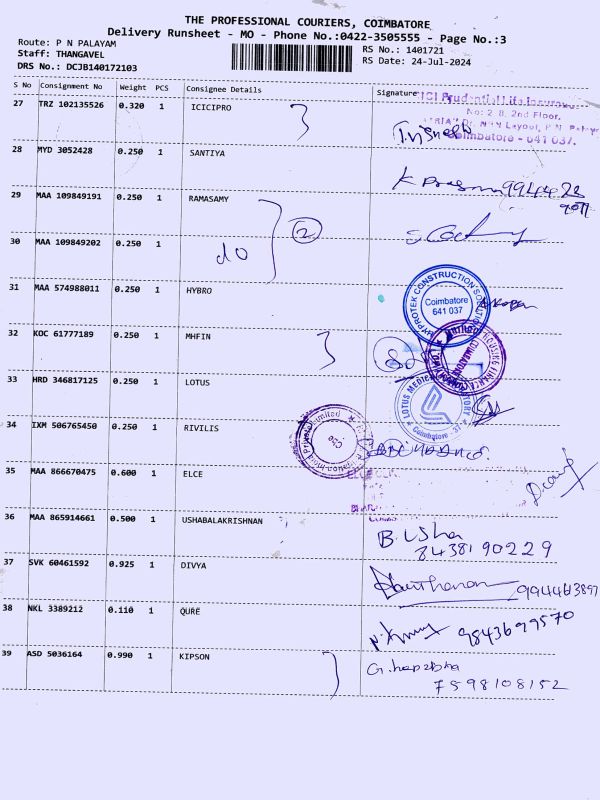 THE PROFESSIONAL COURIERS, COIMBATORE
Delivery Runsheet - MO - Phone No.:0422-3505555 - Page No.:3
Route: P N PALAYAM
RS No.: 1401721
Staff: THANGAVEL
RS Date: 24-Jul-2024
DRS No.: DCJB140172103
S No Consignment No Weight PCS Consignee Details Signature
27 TRZ 102135526 0.320 1 ICICIPRO
No: 2-8, 2nd Floor,
Layout, P.N.
Coimbatore - 641 037.
28 MYD 3052428 0.250 1 SANTIYA
29 MAA 109849191 0.250 1 RAMASAMY
2
30 MAA 109849202 0.250 1
do
31 MAA 574988011 0.250 1 HYBRO
HYPROTEK CONSTRUCTION
Coimbatore
641 037
32 KOC 61777189 0.250 1 MHFIN
33 HRD 346817125 0.250 1 LOTUS
LOTUS
Coimbatore - 37
34 IXM 506765450 0.250 1 RIVILIS
Private Limited
Cbe
35 MAA 866670475 0.600 1 ELCE
36 MAA 865914661 0.500 1 USHABALAKRISHNAN
B. Usha
8438190229
37 SVK 60461592 0.925 1 DIVYA
38 NKL 3389212 0.110 1 QURE
9843699570
39 ASD 5036164 0.990 1 KIPSON
7598108152